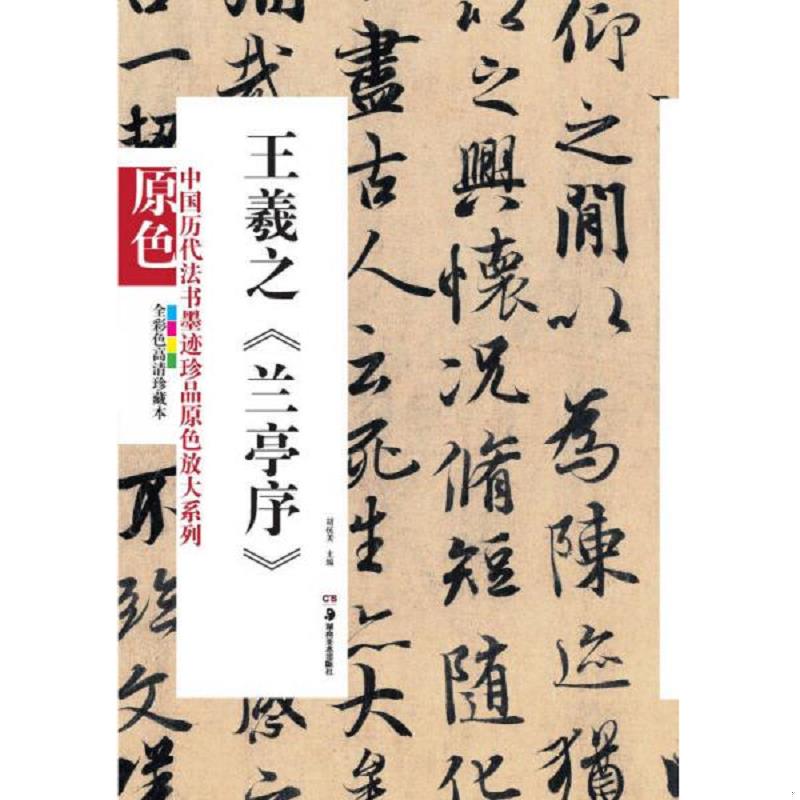 仰之閒以為陳迹猶
以之興懷况脩短随化
盡古人云死生亦大
王羲之《兰亭序》
主编
湖南美术出版社
中国历代法书墨迹珍品原色放大系列
原色
全彩色高清珍藏本
不臨文